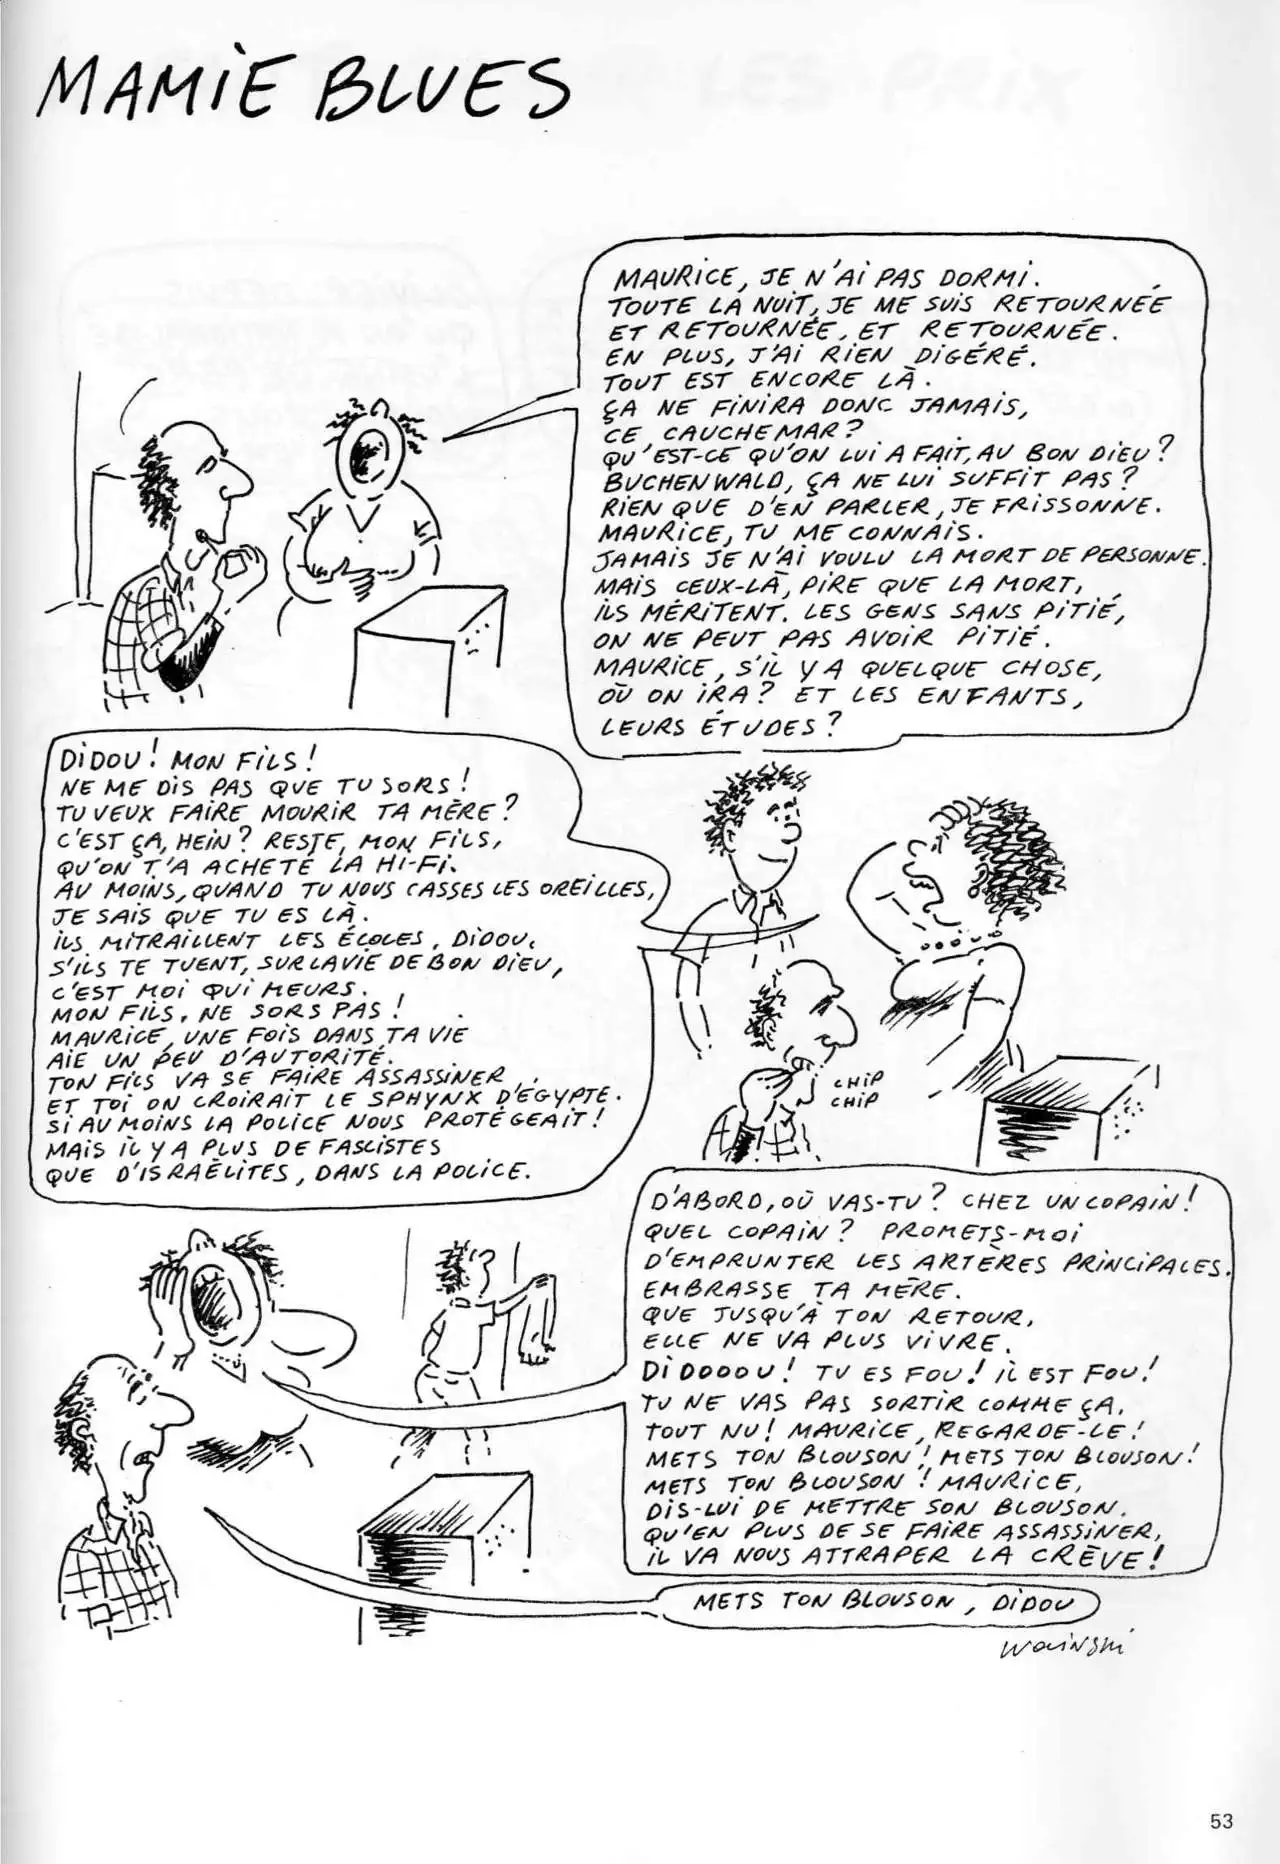 MAMIE BLUES
MAURICE, JE N'AI PAS DORMI.
TOUTE LA NUIT, JE ME SUIS RETOURNÉE
ET RETOURNÉE, ET RETOURNÉE.
EN PLUS, J'AI RIEN DIGÉRÉ.
TOUT EST ENCORE LÀ.
ÇA NE FINIRA DONC JAMAIS,
CE CAUCHEMAR?
QU'EST-CE QU'ON LUI A FAIT, AU BON DIEU?
BUCHENWALD, ÇA NE LUI SUFFIT PAS?
RIEN QUE D'EN PARLER, JE FRISSONNE.
MAURICE, TU ME CONNAIS.
JAMAIS JE N'AI VOULU LA MORT DE PERSONNE.
MAIS CEUX-LÀ, PIRE QUE LA MORT,
ILS MÉRITENT. LES GENS SANS PITIÉ,
ON NE PEUT PAS AVOIR PITIÉ.
MAURICE, S'IL Y A QUELQUE CHOSE,
OÙ ON IRA? ET LES ENFANTS,
LEURS ÉTUDES?
DIDOU! MON FILS!
NE ME DIS PAS QUE TU SORS!
TU VEUX FAIRE MOURIR TA MÈRE?
C'EST ÇA, HEIN? RESTE, MON FILS,
QU'ON T'A ACHETÉ LA HI-FI.
AU MOINS, QUAND TU NOUS CASSES LES OREILLES,
JE SAIS QUE TU ES LÀ.
ILS MITRAILLENT LES ÉCOLES, DIDOU.
S'ILS TE TUENT, SUR LA VIE DE BON DIEU,
C'EST MOI QUI MEURS.
MON FILS, NE SORS PAS!
MAURICE, UNE FOIS DANS TA VIE
AIE UN PEU D'AUTORITÉ.
TON FILS VA SE FAIRE ASSASSINER
ET TOI ON CROIRAIT LE SPHYNX D'ÉGYPTE.
SI AU MOINS LA POLICE NOUS PROTÉGEAIT!
MAIS IL Y A PLUS DE FASCISTES
QUE D'ISRAÉLITES, DANS LA POLICE.
CHIP
CHIP
D'ABORD, OÙ VAS-TU? CHEZ UN COPAIN!
QUEL COPAIN? PROMETS-MOI
D'EMPRUNTER LES ARTÈRES PRINCIPALES.
EMBRASSE TA MÈRE.
QUE JUSQU'À TON RETOUR,
ELLE NE VA PLUS VIVRE.
DIDOOOU! TU ES FOU! IL EST FOU!
TU NE VAS PAS SORTIR COMME ÇA,
TOUT NU! MAURICE, REGARDE-LE!
METS TON BLOUSON! METS TON BLOUSON!
METS TON BLOUSON! MAURICE,
DIS-LUI DE METTRE SON BLOUSON.
QU'EN PLUS DE SE FAIRE ASSASSINER,
IL VA NOUS ATTRAPER LA CRÈVE!
METS TON BLOUSON, DIDOU
WOLINSKI
53